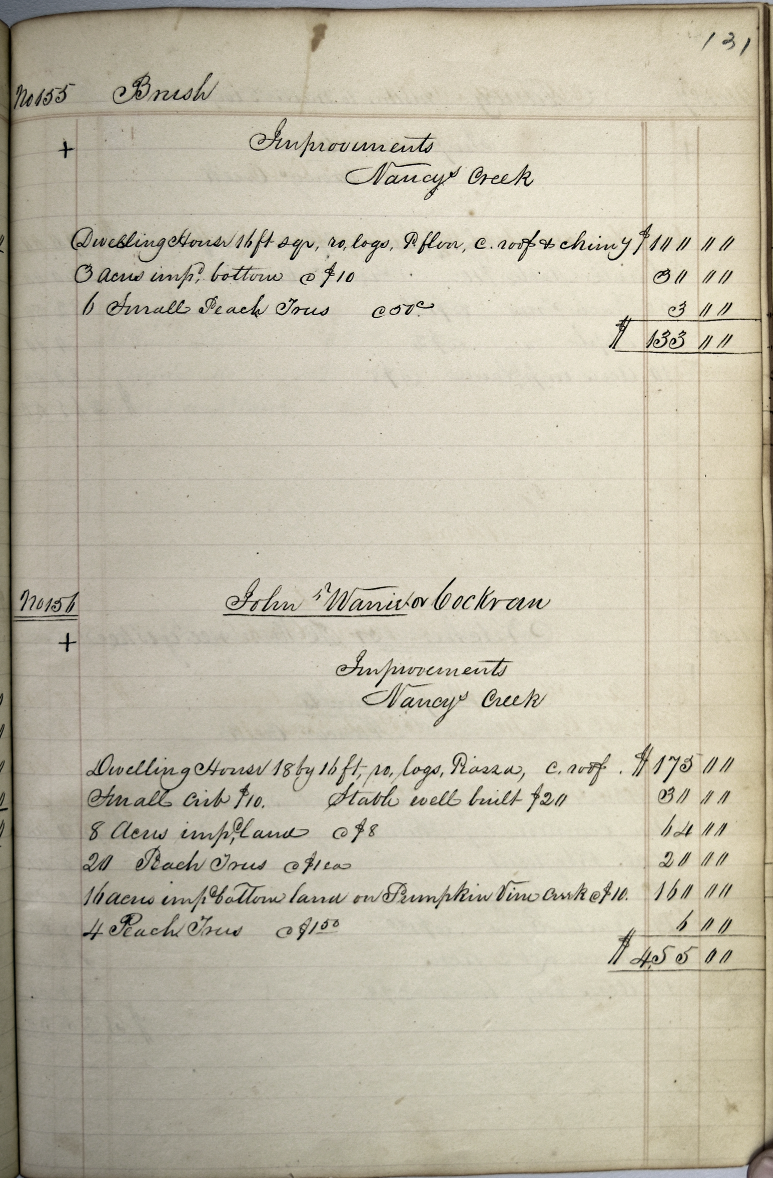 131
No 155 Brush
+
Improvements
Nancys Creek
Dwelling House 16 ft sqr, ro, logs, P. floor, c. roof & chimy $100 00
3 acres impd. bottom @ $10 30 00
6 Small Peach Trees @ 50c 3 00
$ 133 00
No 156 John Warrior Cockran
+
Improvements
Nancys Creek
Dwelling House 18 by 16 ft, ro, logs, Piazza, c. roof. $175 00
Small crib $10. Stable well built $20 30 00
8 Acres impd. land @ $8 64 00
20 Peach Trees @ $1 ea 20 00
16 acres impd bottom land on Pumpkin Vine creek @ $10. 160 00
4 Peach Trees @ $1 50 6 00
$ 455 00